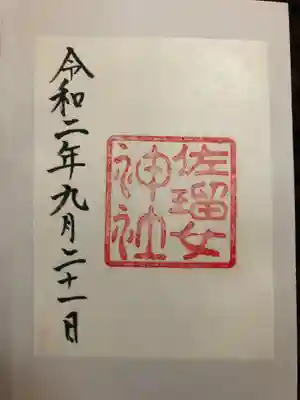 佐瑠女
神社
令和二年九月二十一日